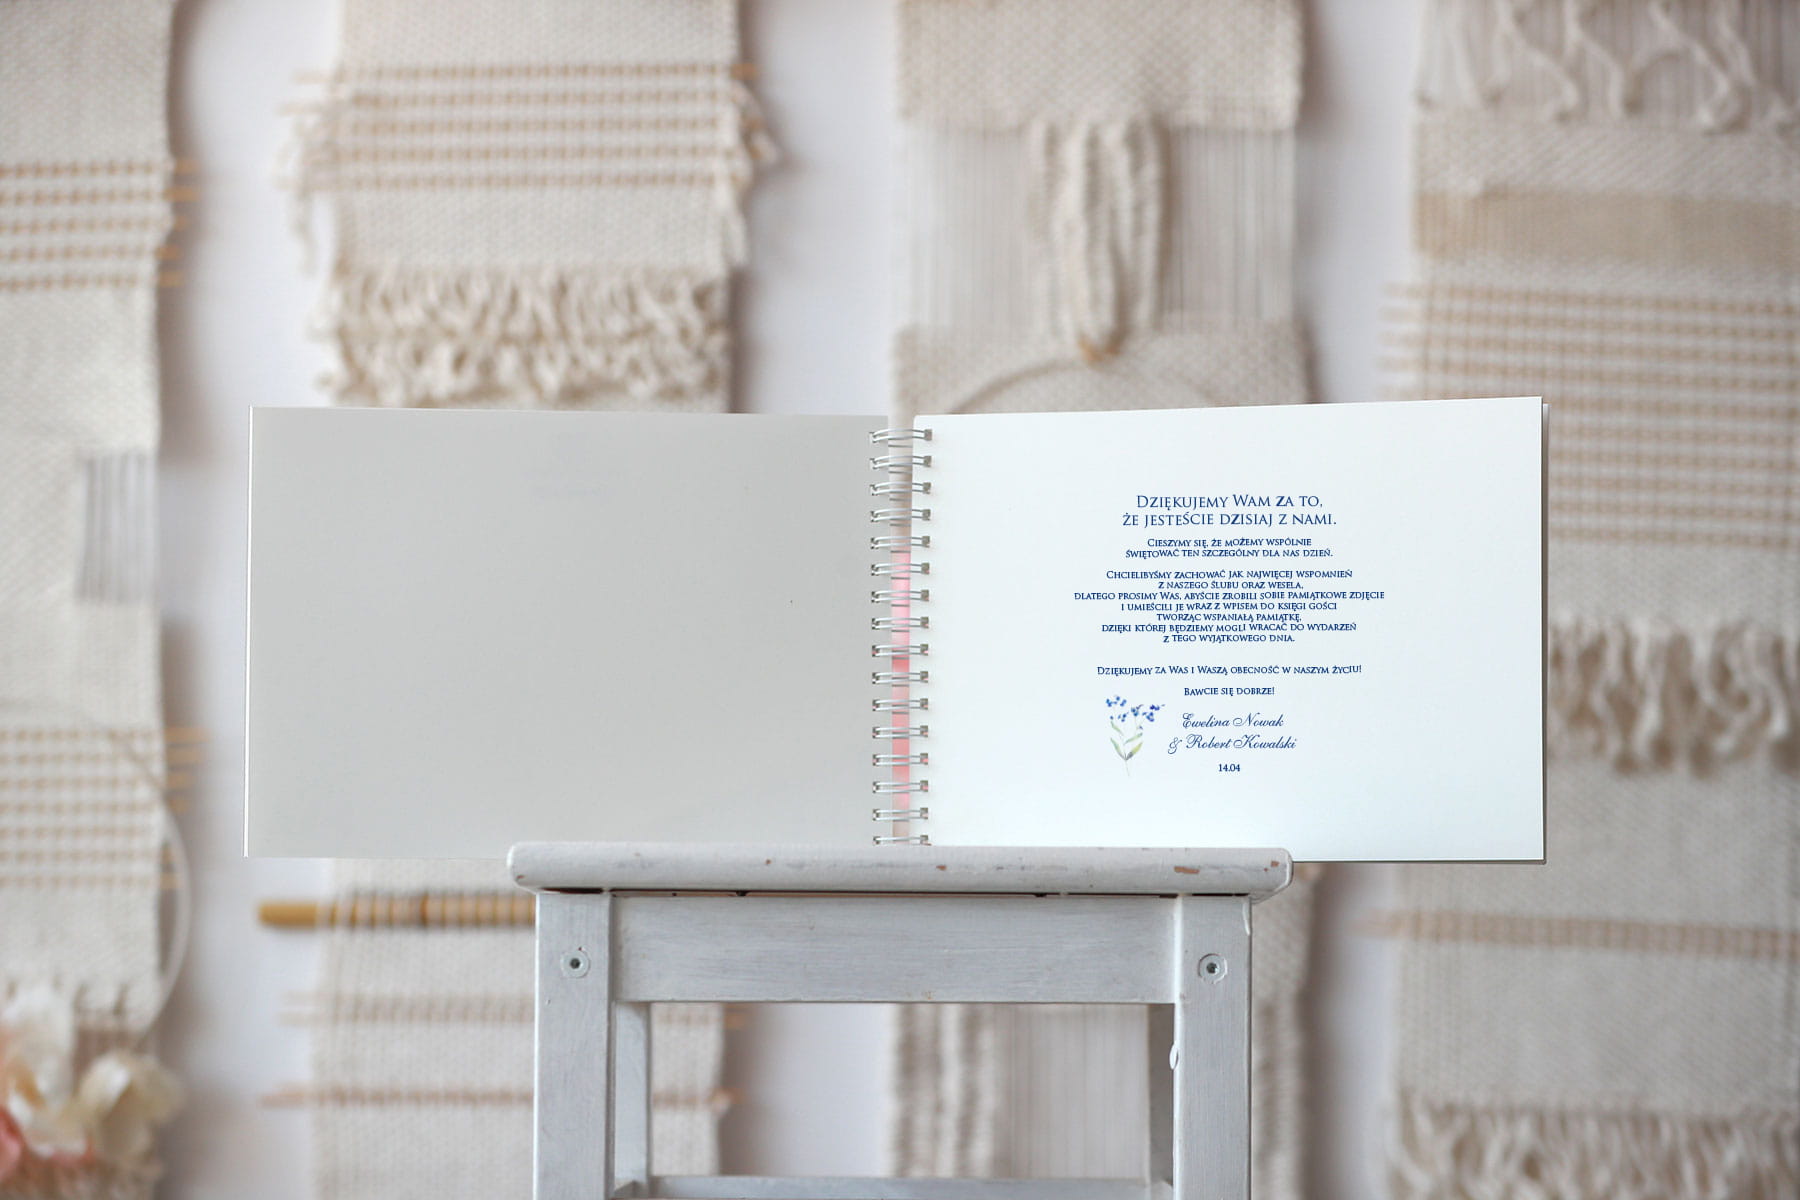 Dziękujemy Wam za to,
że jesteście dzisiaj z nami.
Cieszymy się, że możemy wspólnie
świętować ten szczególny dla nas dzień.
Chcielibyśmy zachować jak najwięcej wspomnień
z naszego ślubu oraz wesela,
dlatego prosimy Was, abyście zrobili sobie pamiątkowe zdjęcie
i umieścili je wraz z wpisem do księgi gości
tworząc wspaniałą pamiątkę,
dzięki której będziemy mogli wracać do wydarzeń
z tego wyjątkowego dnia.
Dziękujemy za Was i Waszą obecność w naszym życiu!
Bawcie się dobrze!
Ewelina Nowak
& Robert Kowalski
14.04